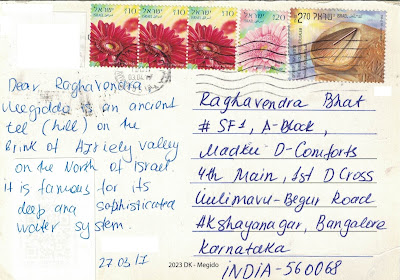 ישראל 1.10
ישראל 1.10
ישראל 1.10
ישראל 1.20
2.70 ישראל ISRAEL
Dear Raghavendra
Megiddo is an ancient
tel (hill) on the
Brink of Ajriely valley
on the North of Israel.
it is famous for its
deep and sophisticated
water system.
27 03/17
Raghavendra Bhat
# SF1, A-Block,
Madhu D-Comforts
4th Main, 1st D Cross
Hulimavu-Begur Road
Akshayanagar, Bangalore
Karnataka
INDIA-560068
2023 DK - Megido